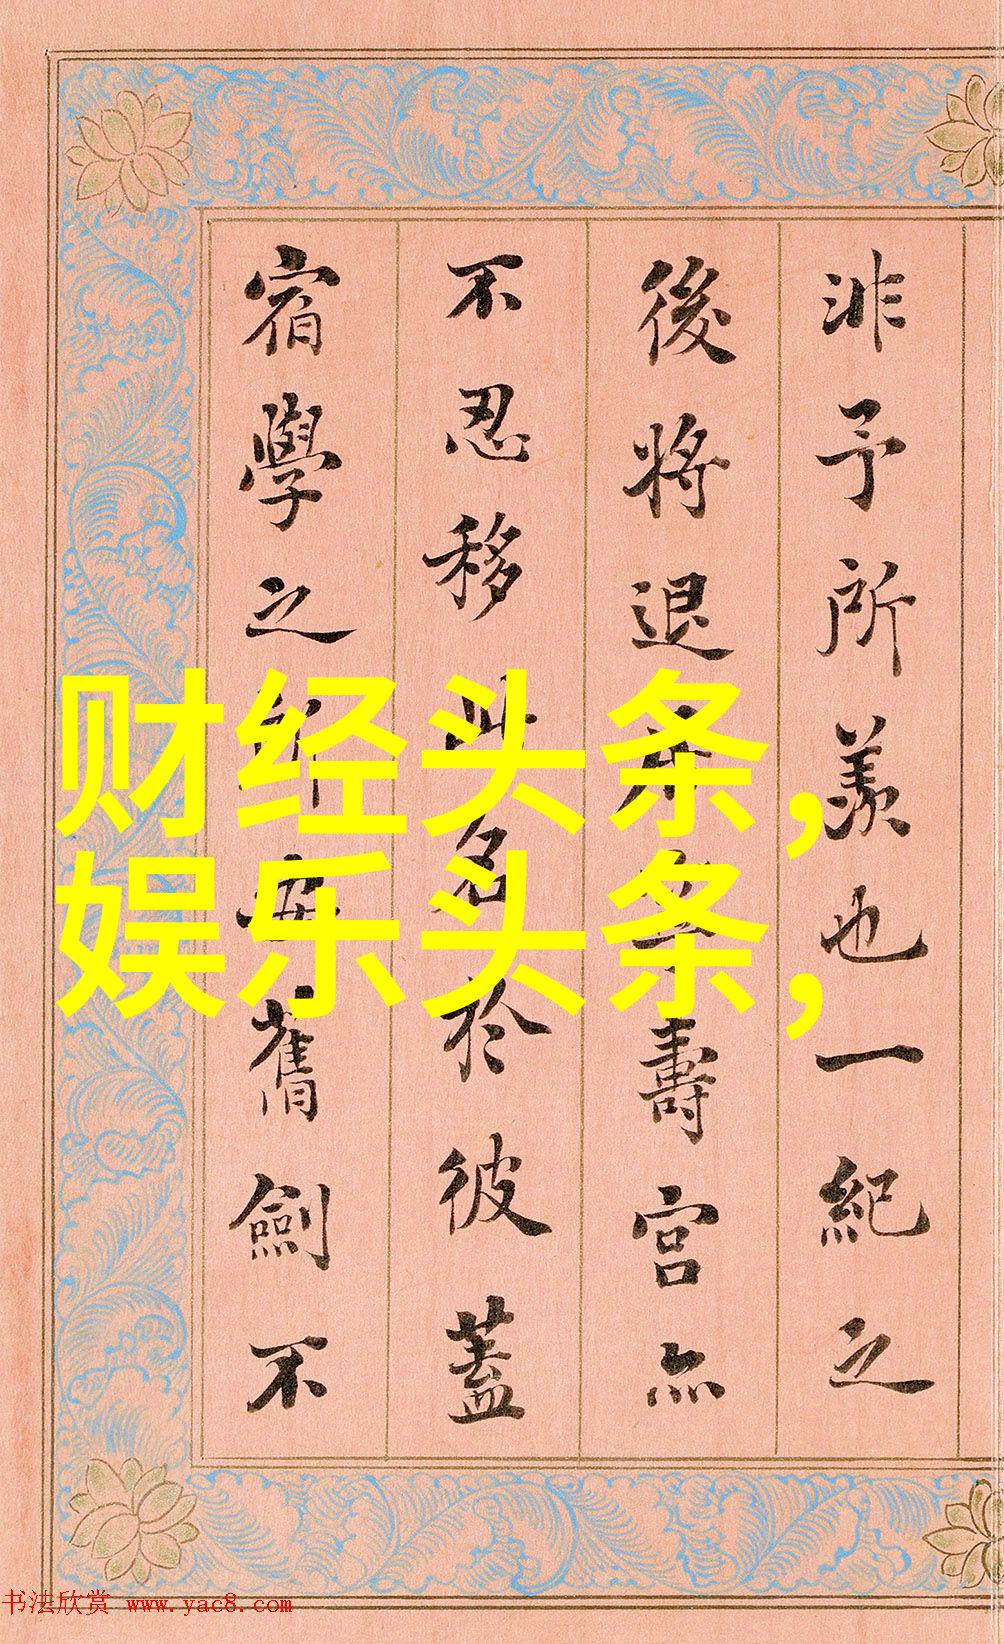 非予所羨也一紀之
後將退 壽宮亦
不忍移此名於彼蓋
宿學之所安舊劍不
财经头条，
娱乐头条，
书法欣赏 www.yac8.com